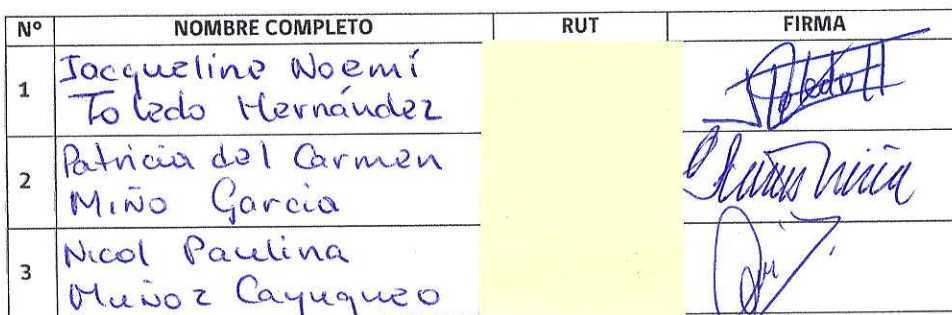 Nº NOMBRE COMPLETO RUT FIRMA
1 Jacqueline Noemí
Toledo Hernández
2 Patricia del Carmen
Miño Garcia
3 Nicol Paulina
Muñoz Cayuqueo